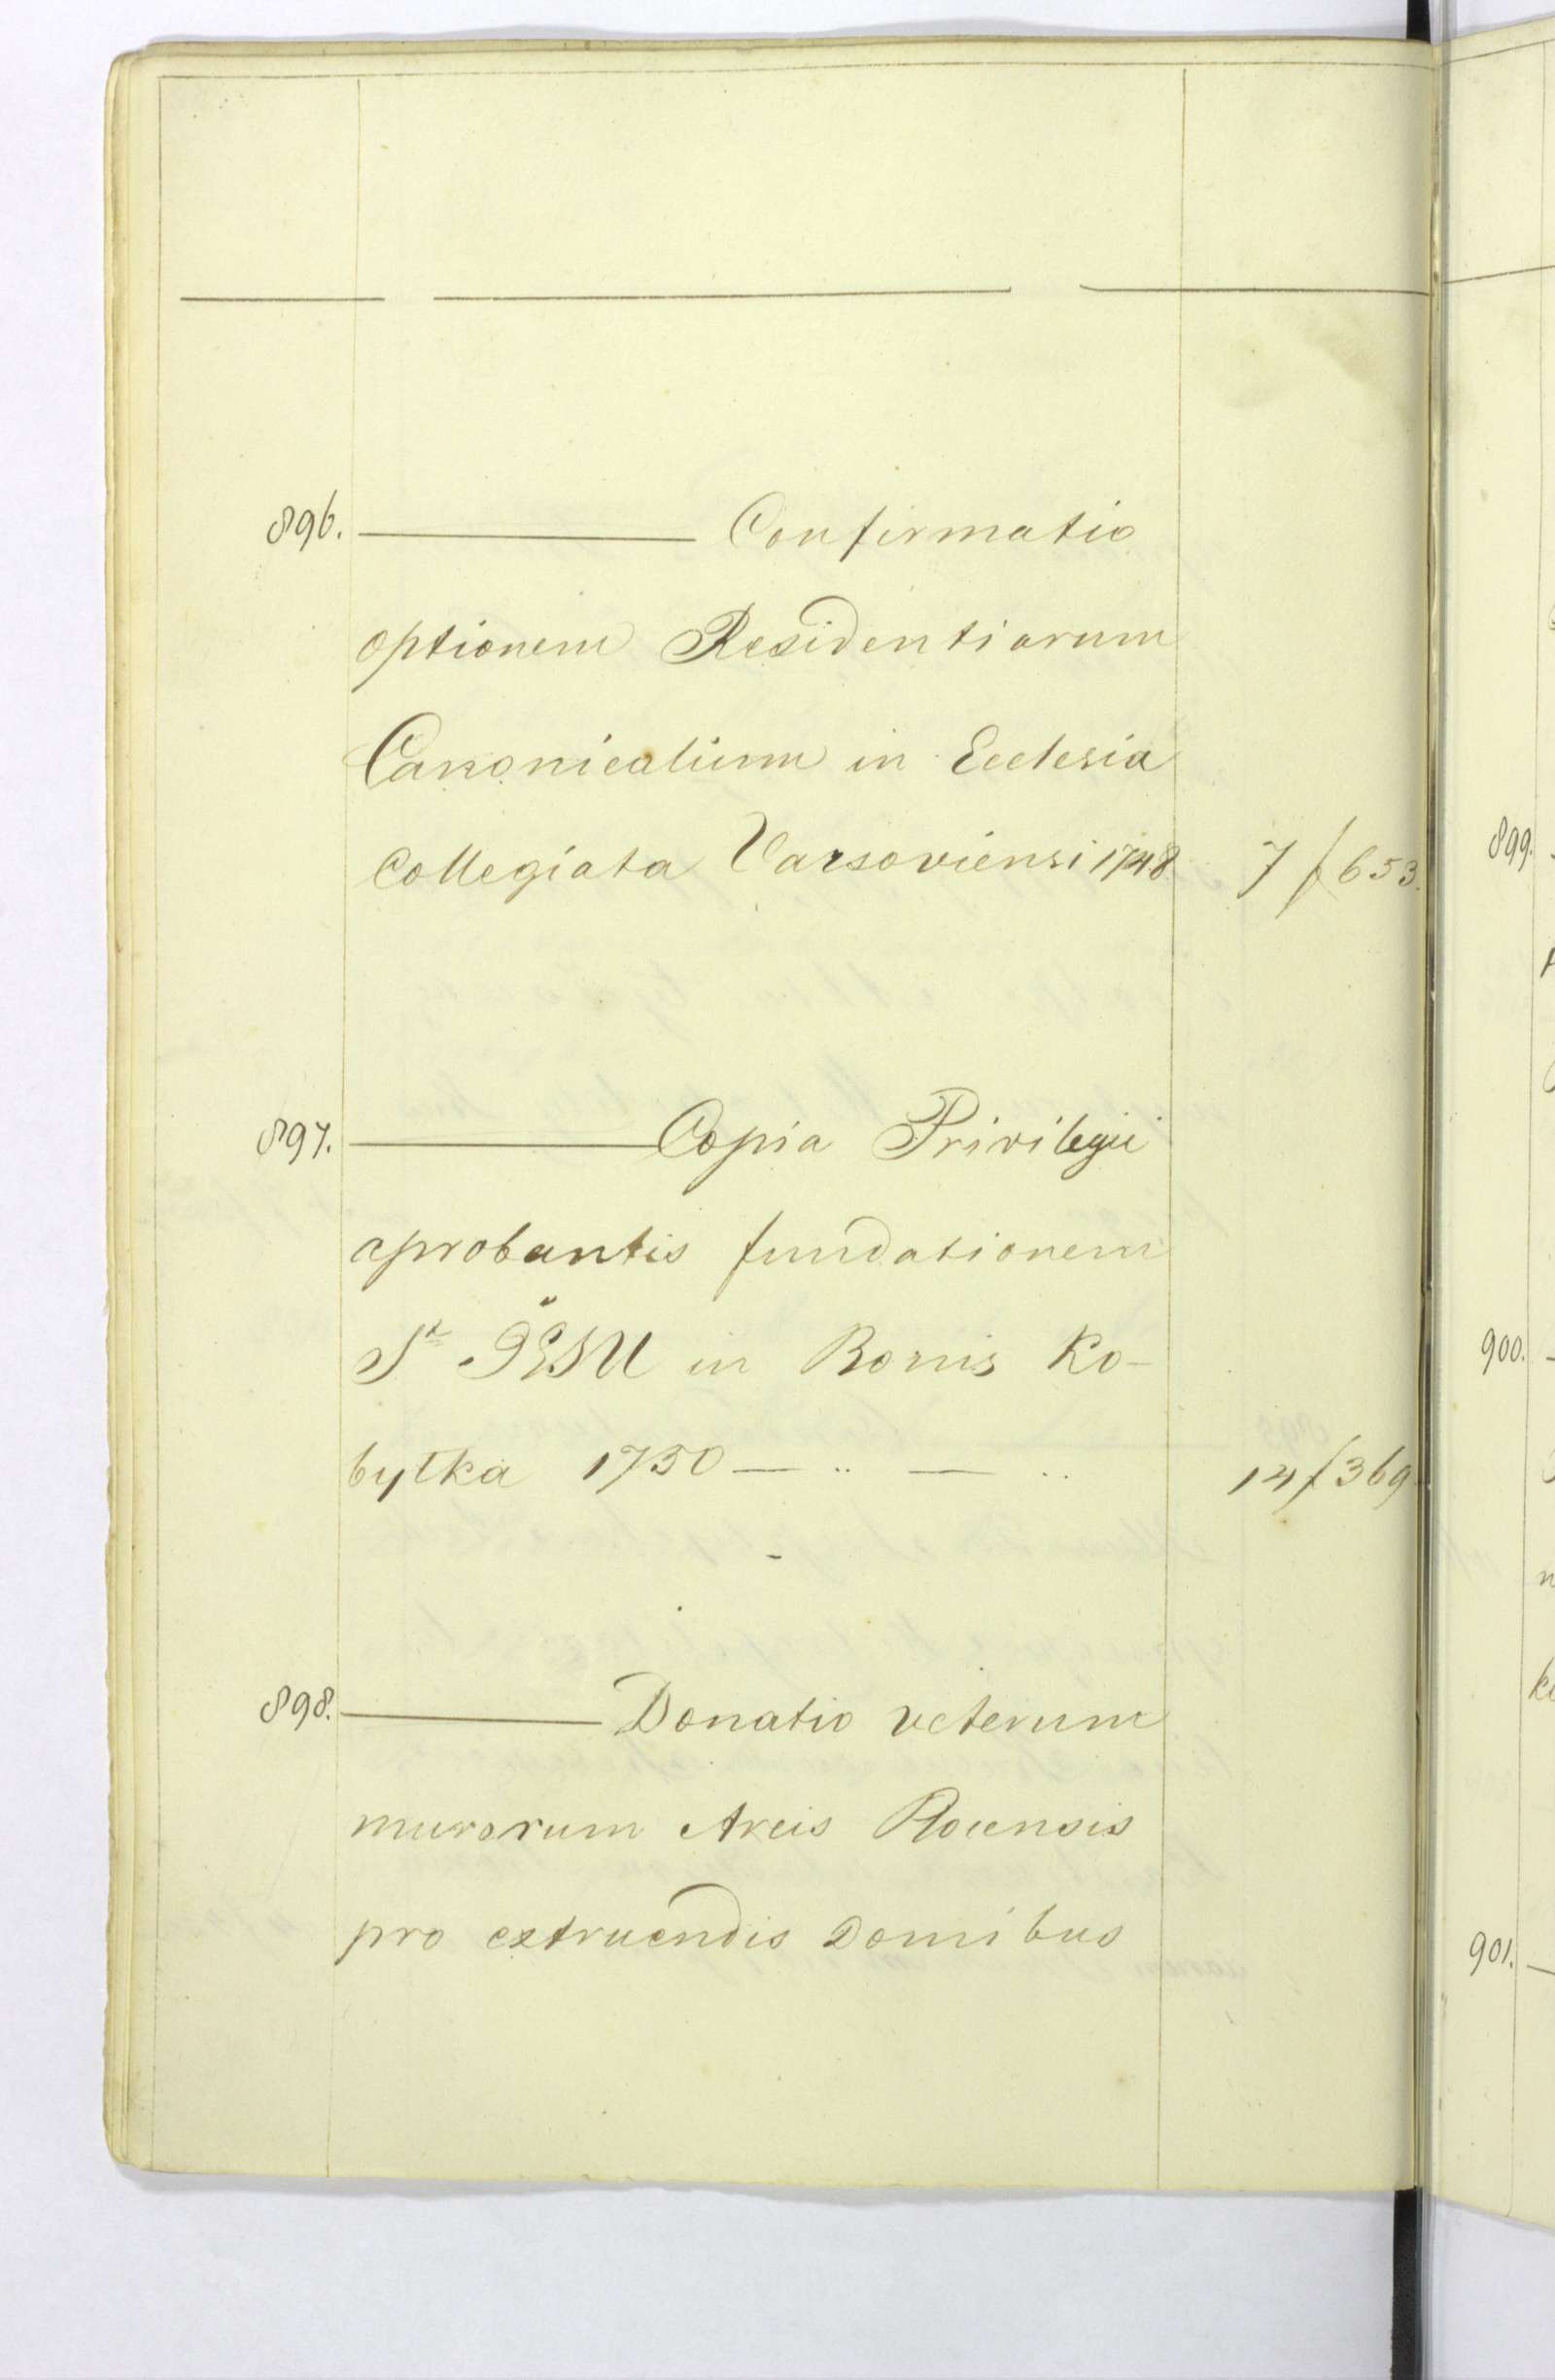 896. ——— Confirmatio
optionem Residentiarum
Canonicalium in Ecclesia
Collegiata Varsoviensi 1748 7 f 653.
897. ——— Copia Privilegii
aprobantis fundationem
S. JESU in Bonis Ko-
bytka 1750 — .. — .. 14 f 369
898. ——— Donatio veterum
murorum Arcis Plocensis
pro extruendis Domibus
899.
900.
901.